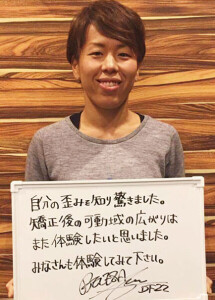 自分の歪みを知り驚きました。
矯正後の可動域の広がりは
また体験したいと思いました。
みなさんも体験してみて下さい。
DF22